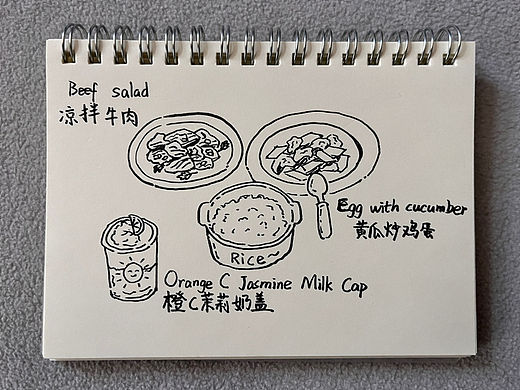 Beef salad
凉拌牛肉
Egg with cucumber
黄瓜炒鸡蛋
Rice~
Orange C Jasmine Milk Cap
橙C茉莉奶盖